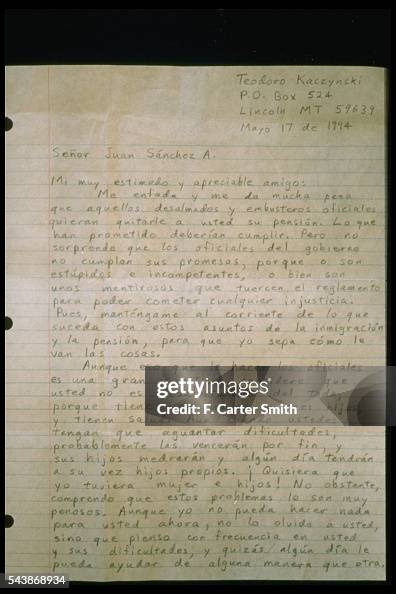 Teodoro Kaczynski
P.O. Box 524
Lincoln MT 59639
Mayo 17 de 1994
Señor Juan Sánchez A.
Mi muy estimado y apreciable amigo:
Me enfada y me da mucha pena
que aquellos desalmados y embusteros oficiales
quieran quitarle a usted su pensión. Lo que
han prometido deberían cumplir. Pero no
sorprende que los oficiales del gobierno
no cumplan sus promesas, porque o son
estúpidos e incompetentes, o bien son
unos mentirosos que tuercen el reglamento
para poder cometer cualquier injusticia.
Pues, manténgame al corriente de lo que
suceda con estos asuntos de la inmigración
y la pensión, para que yo sepa cómo le
van las cosas.
Aunque que le hacen los oficiales
es una gran que
usted no es del
porque tien hijos
y tienen ustedes
tengan que aguantar dificultades,
probablemente las vencerán por fin, y
sus hijos medrarán y algún día tendrán
a su vez hijos propios. ¡Quisiera que
yo tuviera mujer e hijos! No obstante,
comprendo que estos problemas lo son muy
penosos. Aunque yo no pueda hacer nada
para usted ahora, no lo olvido a usted,
sino que pienso con frecuencia en usted
y sus dificultades, y quizás algún día le
pueda ayudar de alguna manera que otra.
gettyimages
Credit: F. Carter Smith
543868934